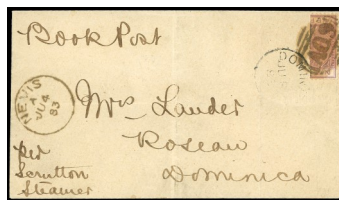 Book Post
NEVIS
A
JU 4
83
Mrs Lauder
Roseau
Dominica
per
Scrutton
Steamer